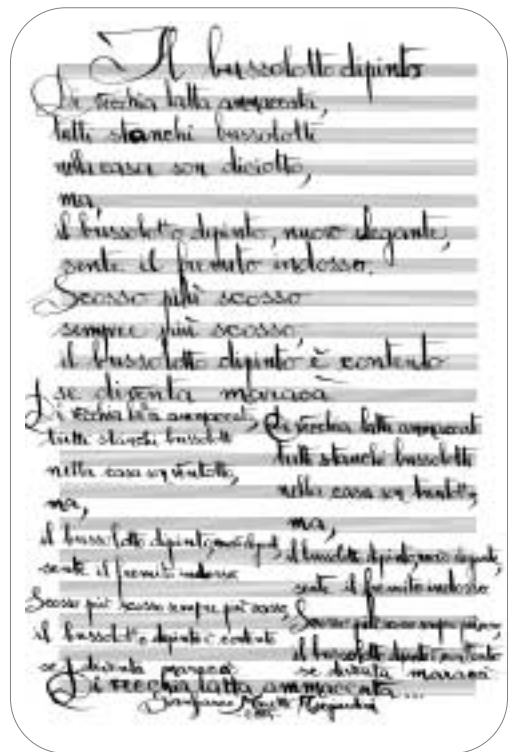 Il bussolotto dipinto
Di vecchia latta ammaccata,
tutti stanchi bussolotti
nella casa son diciotto,
ma,
il bussolotto dipinto, nuovo elegante,
sente il fremito indosso.
Scosso più scosso
sempre più scosso,
il bussolotto dipinto è contento
se diventa maracà
Di vecchia latta ammaccati,
tutti stanchi bussolotti
nella casa son ventotto,
ma,
il bussolotto dipinto, nuovo
sente il fremito indosso
Scosso più scosso sempre più scosso,
il bussolotto dipinto è contento
se diventa maracà
Di vecchia latta ammaccati
tutti stanchi bussolotti
nella casa son
ma,
il bussolotto dipinto, nuovo elegante,
sente il fremito indosso
Scosso più scosso sempre più scosso,
il bussolotto dipinto è contento
se diventa maracà
Di vecchia latta ammaccata...